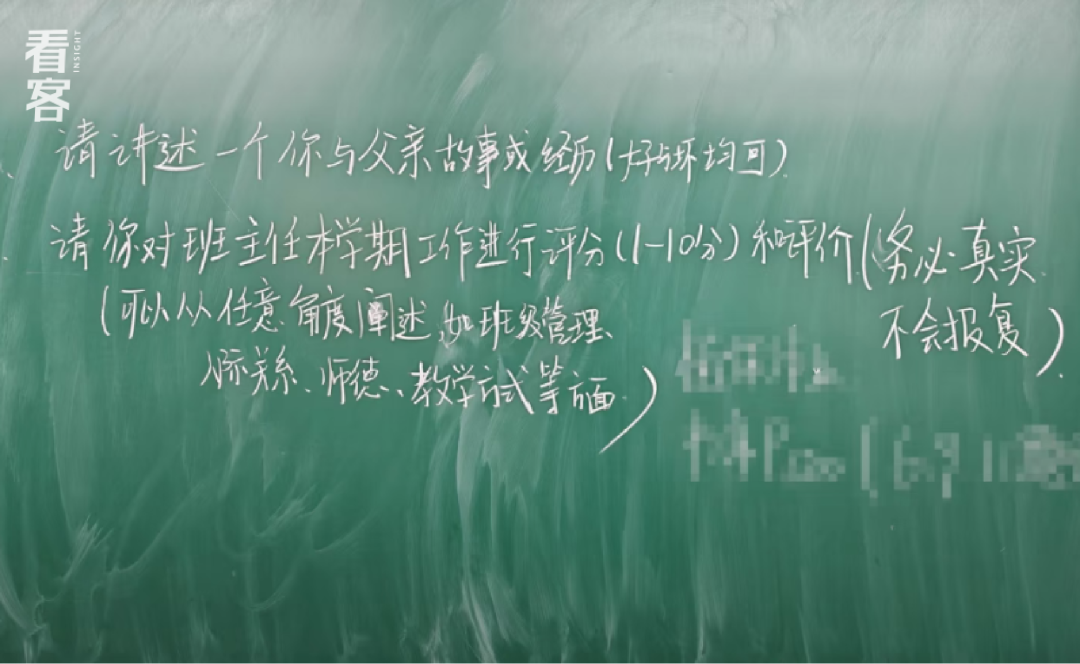 看客
INSIGHT
请讲述一个你与父亲故事或经历(好与坏均可)
请你对班主任本学期工作进行评分(1-10分)和评价(务必真实
不会报复)
(可以从任意角度阐述,如班级管理、
人际关系、师德、教学方式等方面)